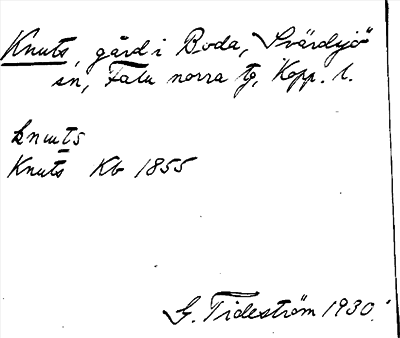 Knuts, gård i Boda, Svärdsjö
sn, Falu norra tg, Kopp. l.
knuts
Knuts Kb 1855
G. Tideström 1930.